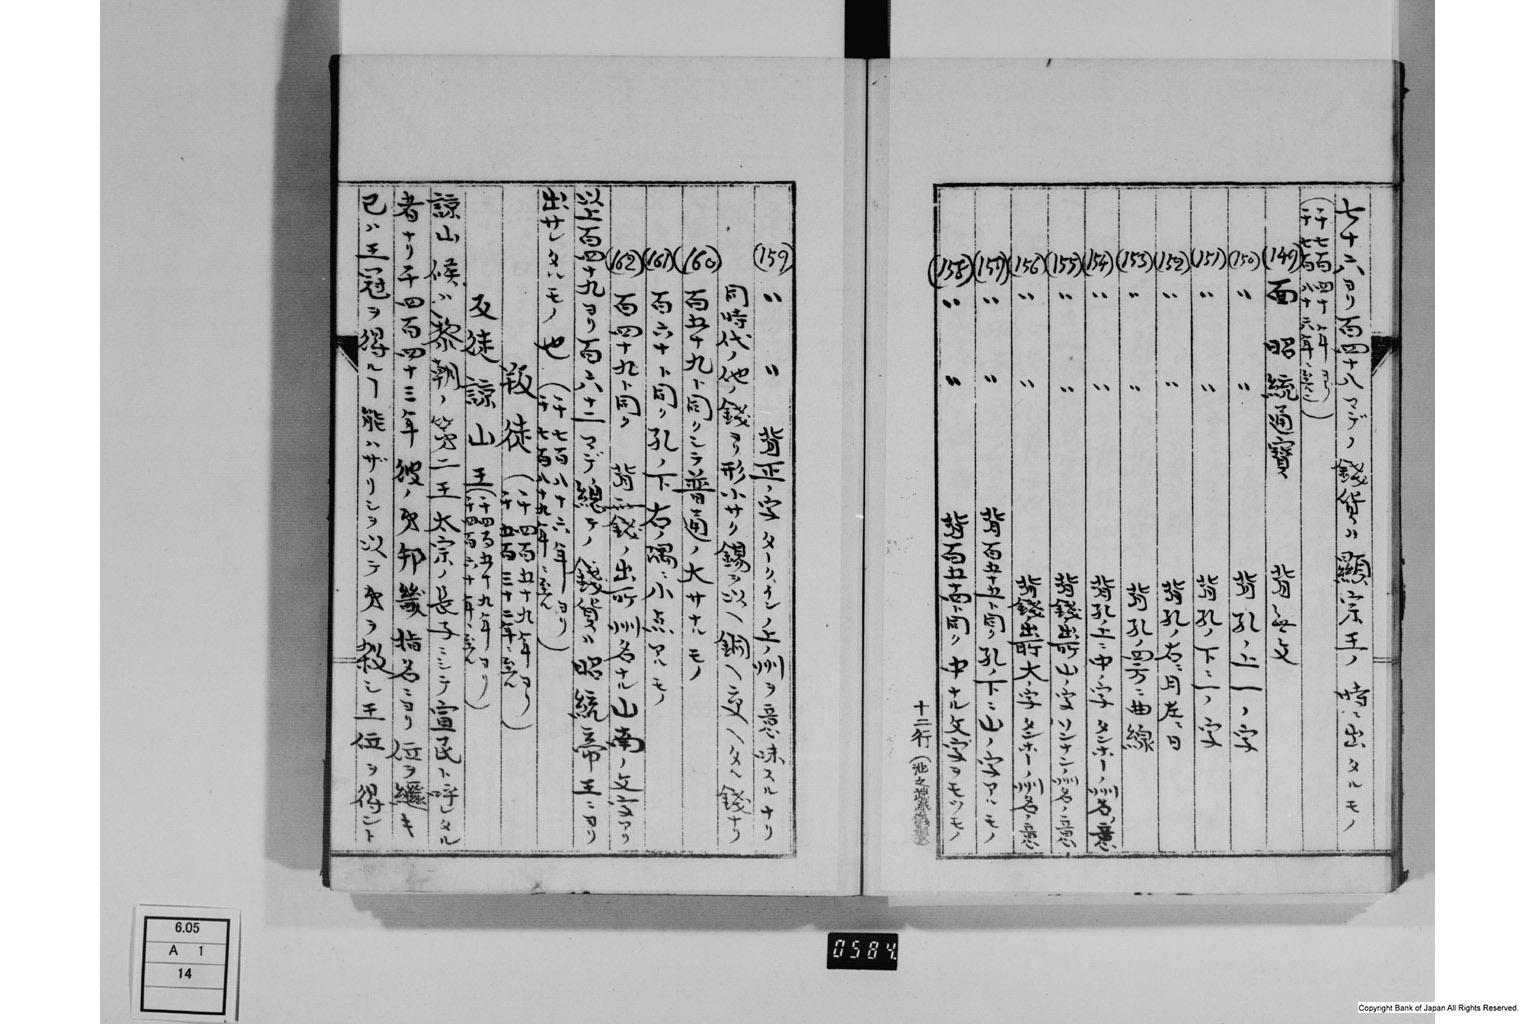 七十六ヨリ百四十八マデノ錢貨ハ顯宗王ノ時ニ出タルモノ
(千七百四十年ヨリ
千七百八十六年ニ至ル)
(149) 面 昭統通寶 背無文
(150) 〃 〃 背孔ノ上一ノ字
(151) 〃 〃 背孔ノ下ニ一ノ字
(152) 〃 〃 背孔ノ右ニ月左ニ日
(153) 〃 〃 背孔ノ四方ニ曲線
(154) 〃 〃 背孔ノ上ニ中ノ字タンホーノ州名ノ意
(155) 〃 〃 背錢出所山ノ字ソンナンノ州名ノ意
(156) 〃 〃 背錢出所大ノ字タンホーノ州名ノ意
(157) 〃 〃 背百五十五ト同ク孔ノ下ニ山ノ字アルモノ
(158) 〃 〃 背百五十四ト同ク中ナル文字ヲモツモノ
十二行
(159) 〃 〃 背正ノ字タークインノ上ノ州ヲ意味スルナリ
同時代ノ他ノ錢ヨリ形小サク錫ヲ以ヘ銅ヘ交ヘタル錢ナリ
(160) 百五十九ト同クシテ普通ノ大サナルモノ
(161) 百六十ト同ク孔ノ下右ノ隅ニ小点アルモノ
(162) 百四十九ト同ク 背ニ錢ノ出所州名ナル山南ノ文字アリ
以上百四十九ヨリ百六十二マデノ總テノ錢貨ハ昭統帝王ニヨリ
出サレタルモノ也 (千七百八十六年ヨリ
千七百八十九年ニ至ル)
叛徒 (千四百五十九年ヨリ
千五百三十二年ニ至ル)
反徒諒山王 (千四百五十九年ヨリ
千四百六十年ニ至ル)
諒山候ハ黎朝ノ第二王太宗ノ長子ニシテ宣民ト呼レタル
者ナリ千四百四十三年彼ノ弟邦畿指名ニヨリ位ヲ繼キ
己ハ王冠ヲ得ルヿ能ハザリシヲ以テ弟ヲ殺シ王位ヲ得ント
6.05
A 1
14
0584
Copyright Bank of Japan All Rights Reserved.